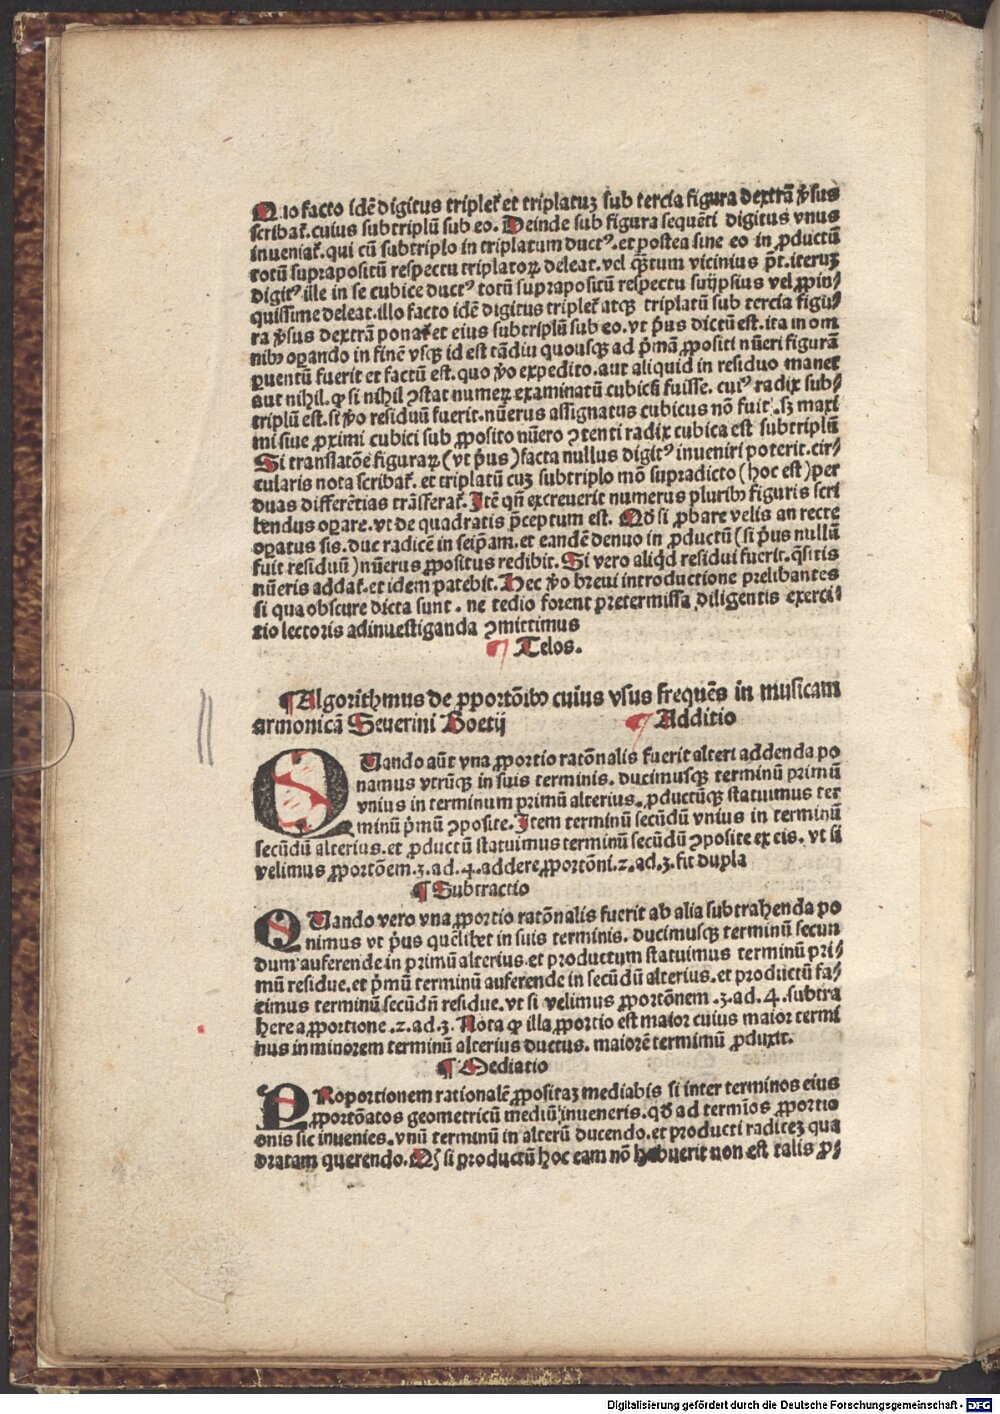 Quo facto idē digitus triplet᷒ et triplatuꝫ sub tercia figura dextrā ꝟsus
scribat᷒. cuius subtriplū sub eo. Deinde sub figura sequēti digitus vnus
inueniat᷒. qui cū subtriplo in triplatum ductꝰ. et postea sine eo in ꝓductū
totū suprapositū respectu triplatoꝝ deleat. vel qꝫtum vicinius p̄t. iteruꝫ
digitꝰ ille in se cubice ductꝰ totū suprapositū respectu suijpsius vel ꝓpin⸗
quissime deleat. illo facto idē digitus triplet᷒ atqꝫ triplatū sub tercia figu⸗
ra ꝟsus dextrām ponat᷒ et eius subtriplū sub eo. vt p̄us dictū est. ita in om
nibꝫ oꝑando in finē vsqꝫ id est tādiu quousqꝫ ad p̄mā ꝓpositi nūeri figurā
ꝑuentū fuerit et factū est. quo ꝟo expedito. aut aliquid in residuo manet
aut nihil. ꝙ si nihil ꝯstat numeꝝ examinatū cubicū fuisse. cuiꝰ radix sub⸗
triplū est. si ꝟo residuū fuerit. nūerus assignatus cubicus nō fuit. sꝫ maxi
mi siue ꝓximi cubici sub ꝓposito nūero ꝯtenti radix cubica est subtriplū
Si translatōe figuraꝝ (vt p̄us) facta nullus digitꝰ inueniri poterit. cir⸗
cularis nota scribat᷒. et triplatū cuꝫ subtriplo mō supradicto (hoc est) per
duas differētias trāsferat᷒. Itē qn̄ excreuerit numerus pluribꝫ figuris scri
bendus oꝑare. vt de quadratis p̄ceptum est. Qd̄ si ꝓbare velis an recte
oꝑatus sis. duc radicē in seip̄am. et eandē denuo in ꝓductū (si p̄us nullū
fuit residuū) nūerus ꝓpositus redibit. Si vero aliqͥd residui fuerit. q̄sitis
nūeris addat᷒. et idem patebit. Hec ꝟo breui introductione prelibantes
si qua obscure dicta sunt. ne tedio forent pretermissa diligentis exerci⸗
tio lectoris adinuestiganda ꝯmittimus
¶ Telos.
¶Algorithmus de ꝓportōibꝫ cuius vsus frequēs in musicam
armonicā Seuerini Boetij
¶ Additio
QUando aūt vna ꝓportio ratōnalis fuerit alteri addenda po
namus vtrūqꝫ in suis terminis. ducimusqꝫ terminū primū
vnius in terminum primū alterius. ꝓductūqꝫ statuimus ter
minū p̄mū ꝯposite. Item terminū secūdū vnius in terminū
secūdū alterius. et ꝓductū statuimus terminū secūdū ꝯposite ex eis. vt si
velimus ꝓportōem .3. ad .4. addere ꝓportōni .2. ad .3. fit dupla
¶ Subtractio
QUando vero vna ꝓportio ratōnalis fuerit ab alia subtrahenda po
nimus vt p̄us quēlibet in suis terminis. ducimusqꝫ terminū secun
dum auferende in primū alterius. et productum statuimus terminū pri⸗
mū residue. et p̄mū terminū auferende in secūdū alterius. et productū fa⸗
cimus terminū secūdū residue. vt si velimus ꝓportōnem .3. ad .4. subtra
here a ꝓportione .2. ad .3. Nota ꝙ illa ꝓportio est maior cuius maior termi
nus in minorem terminū alterius ductus. maiorē terminū ꝓduxit.
¶ Mediatio
PRoportionem rationalē ꝓpositaꝫ mediabis si inter terminos eius
ꝓportōatos geometricū mediū inueneris. qd̄ ad termīos ꝓportio
onis sic inuenies. vnū terminū in alterū ducendo. et producti radiceꝫ qua
dratam querendo. Qꝫ si productū hoc eam nō habuerit non est talis ꝓ⸗
Digitalisierung gefördert durch die Deutsche Forschungsgemeinschaft - DFG